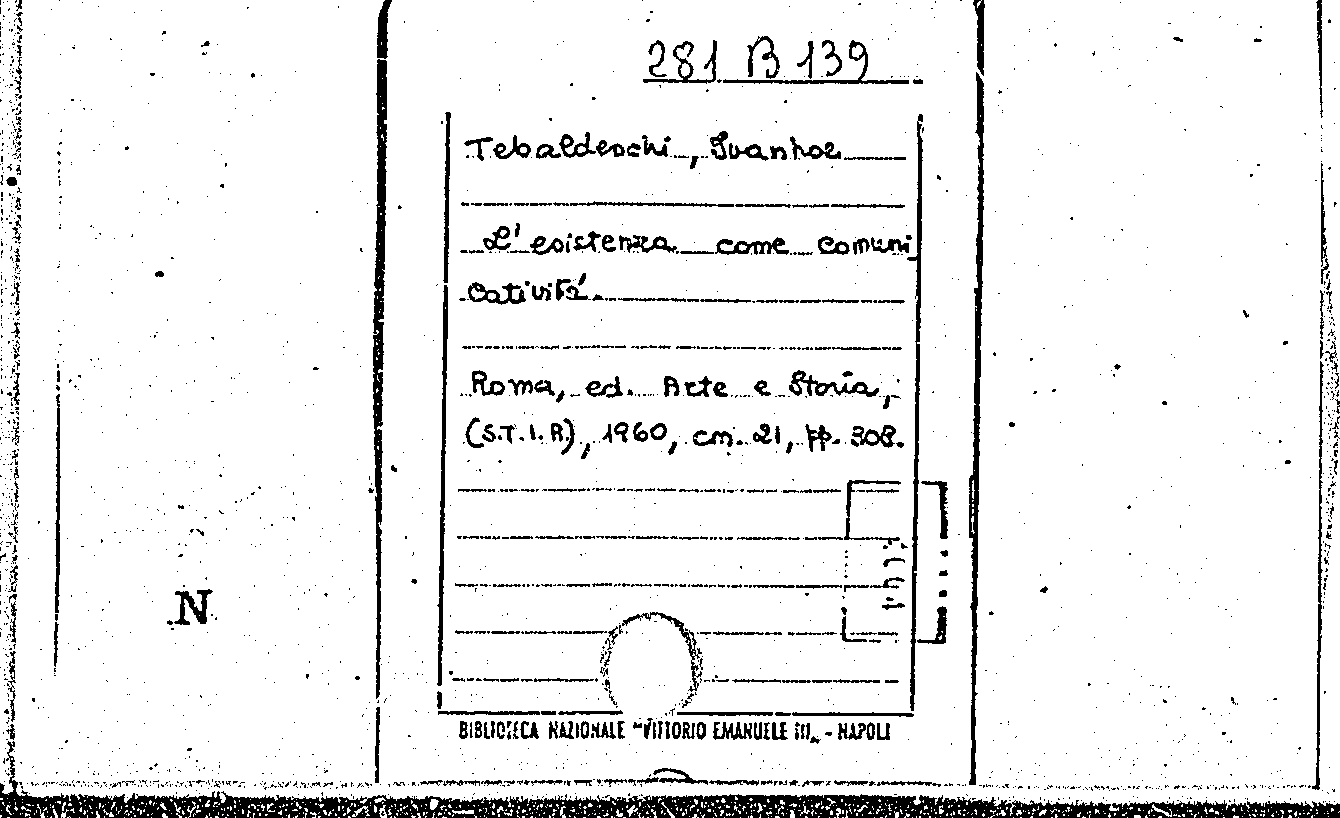 281 B 139
Tebaldeschi, Ivanhoe
L'esistenza come comuni
catività.
Roma, ed. Arte e Storia,
(S.T.I.A), 1960, cm. 21, pp. 308.
N
BIBLIOTECA NAZIONALE "VITTORIO EMANUELE III„ - NAPOLI